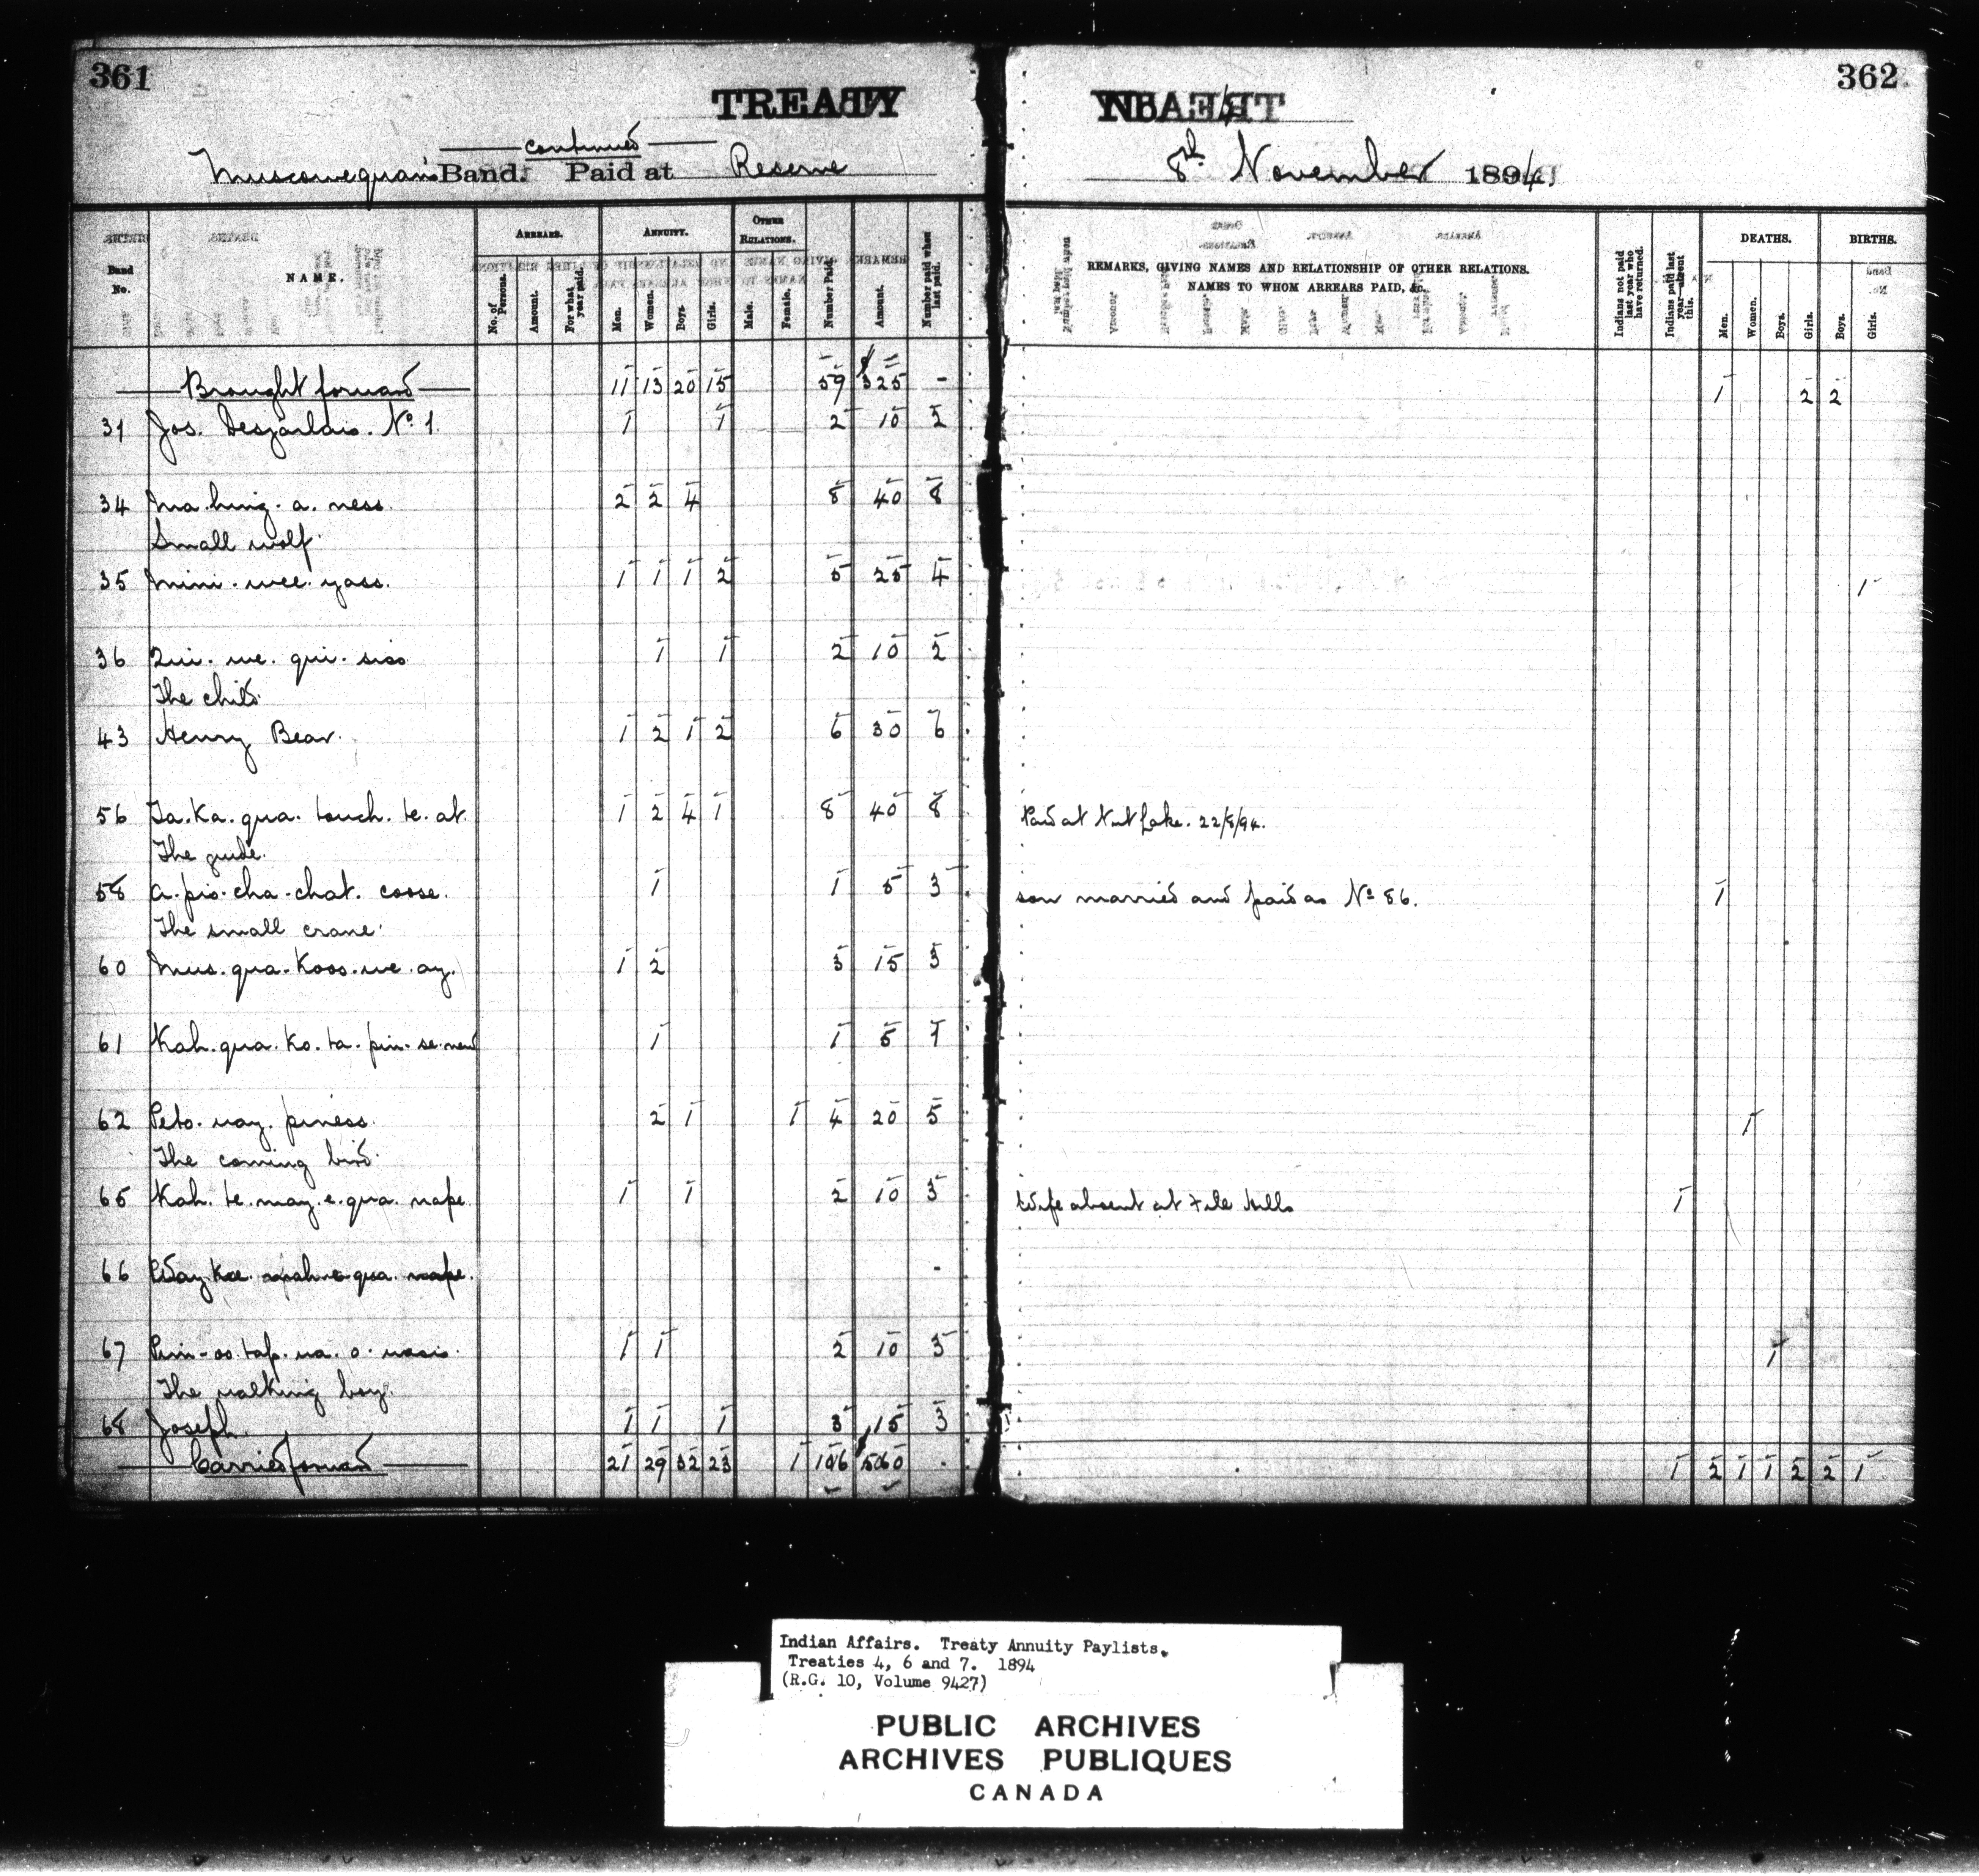 361
362
TREATY
continued
Muscowequan's Band. Paid at Reserve
8th November 1894
Band No.
NAME.
ARREARS.
No. of Persons.
Amount.
For what year paid.
ANNUITY.
Men.
Women.
Boys.
Girls.
OTHER RELATIONS.
Male.
Female.
Number Paid.
Amount.
Number paid when last paid.
REMARKS, GIVING NAMES AND RELATIONSHIP OF OTHER RELATIONS.
NAMES TO WHOM ARREARS PAID, &c.
Indians not paid last year who have returned.
Indians paid last year absent this.
DEATHS.
Men.
Women.
Boys.
Girls.
BIRTHS.
Boys.
Girls.
Brought forward 11 13 20 15 59 $325 - 1 2 2
31 Jos. Desjarlais. No 1. 1 1 2 10 2
34 Ma. hing. a. ness. 2 2 4 8 40 8
Small wolf.
35 Mini. wee. yass. 1 1 1 2 5 25 4 1
36 Qui. we. qui. siss 1 1 2 10 2
The child.
43 Henry Bear. 1 2 1 2 6 30 6
56 Ta. Ka. qua. touch. te. at. 1 2 4 1 8 40 8 Paid at Nut Lake. 22/8/94.
The guide.
58 A. pis. cha. chat. coose. 1 1 5 3 son married and paid as No 86. 1
The small crane.
60 Mus. qua. Koos. we. ay. 1 2 3 15 3
61 Kah. qua. Ko. ta. pin. se. 1 1 5 1
62 Peto. way. piness. 2 1 1 4 20 5 1
The coming bird.
65 Kah. te. may. e. qua. nape. 1 1 2 10 3 Wife absent at File Hills 1
66 qua. nape. -
67 Pim-oo. tap. wa. o. 1 1 2 10 3 1
The walking boy.
68 Joseph. 1 1 1 3 15 3
Carried forward 21 29 32 23 1 106 $5060 . 1 2 1 1 2 2 1
Indian Affairs. Treaty Annuity Paylists.
Treaties 4, 6 and 7. 1894
(R.G. 10, Volume 9427)
PUBLIC ARCHIVES
ARCHIVES PUBLIQUES
CANADA